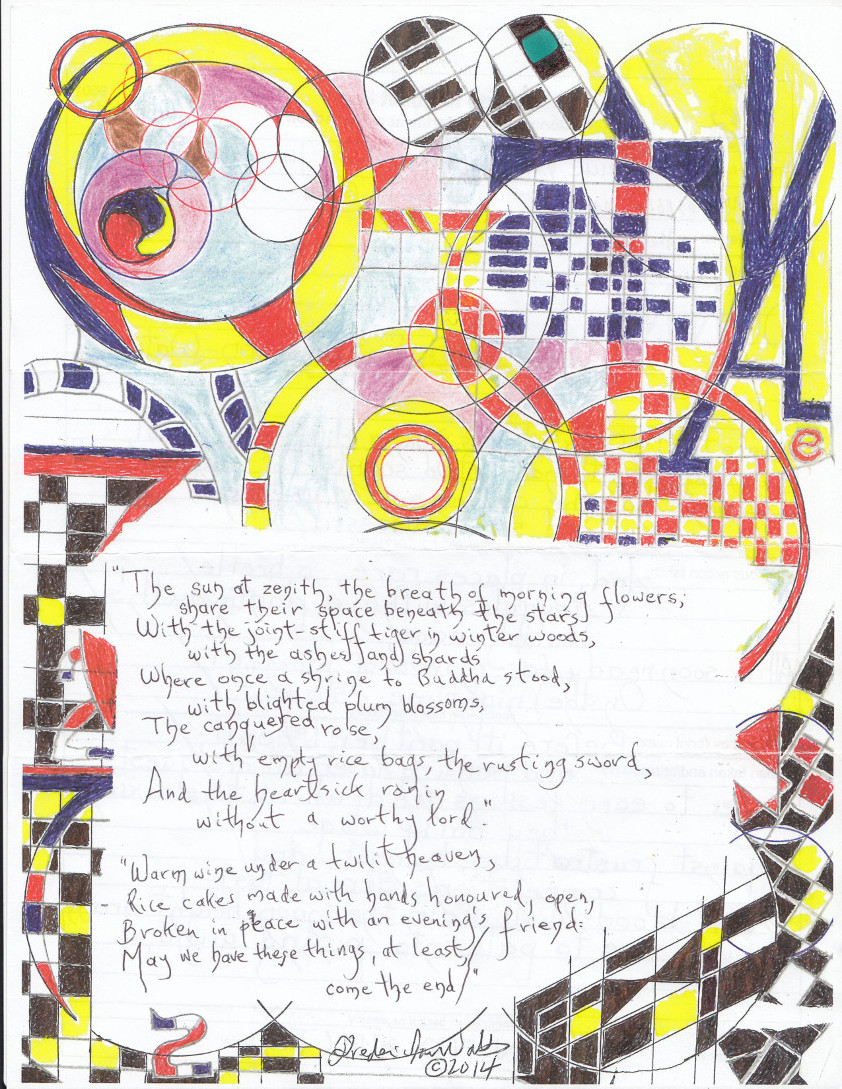 "The sun at zenith, the breath of morning flowers;
share their space beneath the stars
With the joint-stiff tiger in winter woods,
with the ashes and shards
Where once a shrine to Buddha stood,
with blighted plum blossoms,
The canquered rose,
with empty rice bags, the rusting sword,
And the heartsick ronin
without a worthy lord."
"Warm wine under a twilit heaven,
Rice cakes made with hands honoured, open,
Broken in peace with an evening's friend:
May we have these things, at least,
come the end!"
©2014